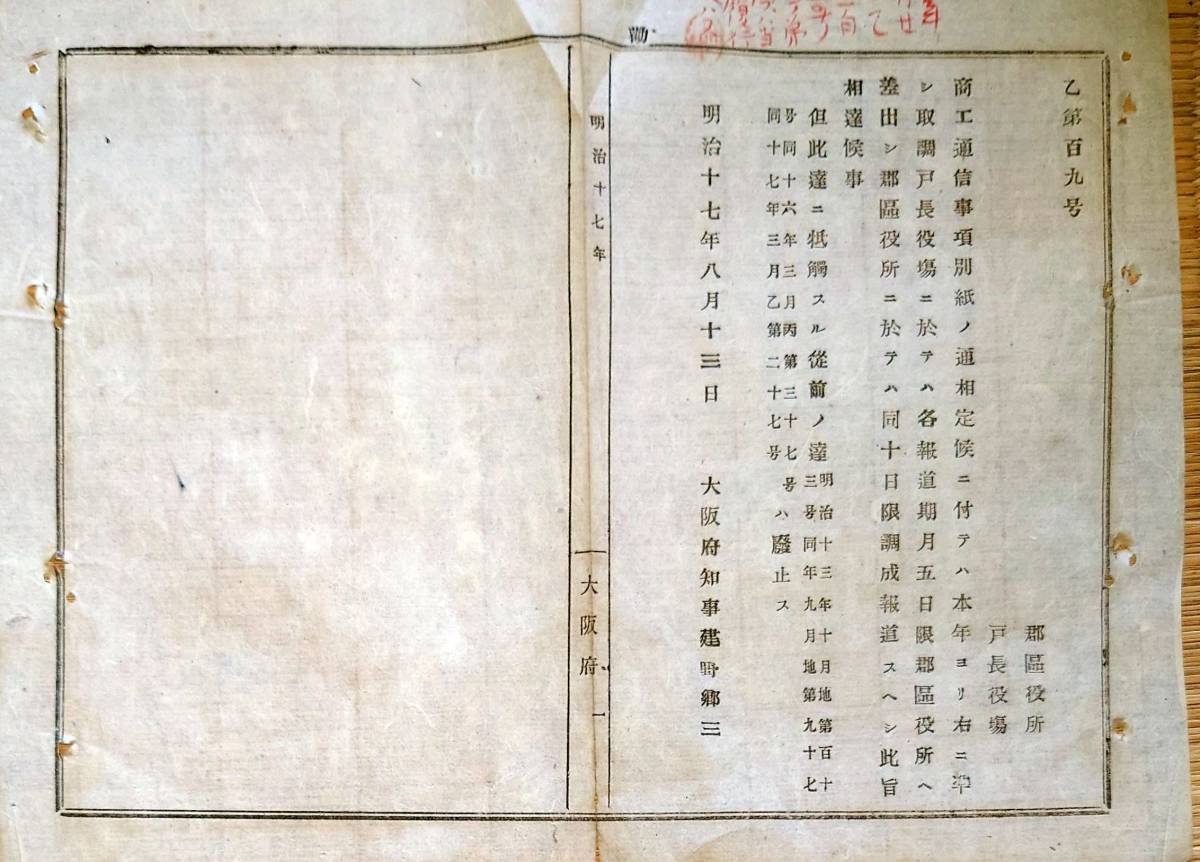 乙第百九号
郡區役所
戸長役塲
商工通信事項別紙ノ通相定候ニ付テハ本年ヨリ右ニ凖
シ取調戸長役塲ニ於テハ各報道期月五日限郡區役所ヘ
差出シ郡區役所ニ於テハ同十日限調成報道スヘシ此旨
相達候事
但此達ニ牴觸スル從前ノ達明治十三年十月地第百十
三号同年九月地第九十七
号同十六年三月丙第三十七号
同十七年三月乙第二十七号ハ廢止ス
明治十七年八月十三日 大阪府知事建野郷三
勸
明治十七年
大阪府
一